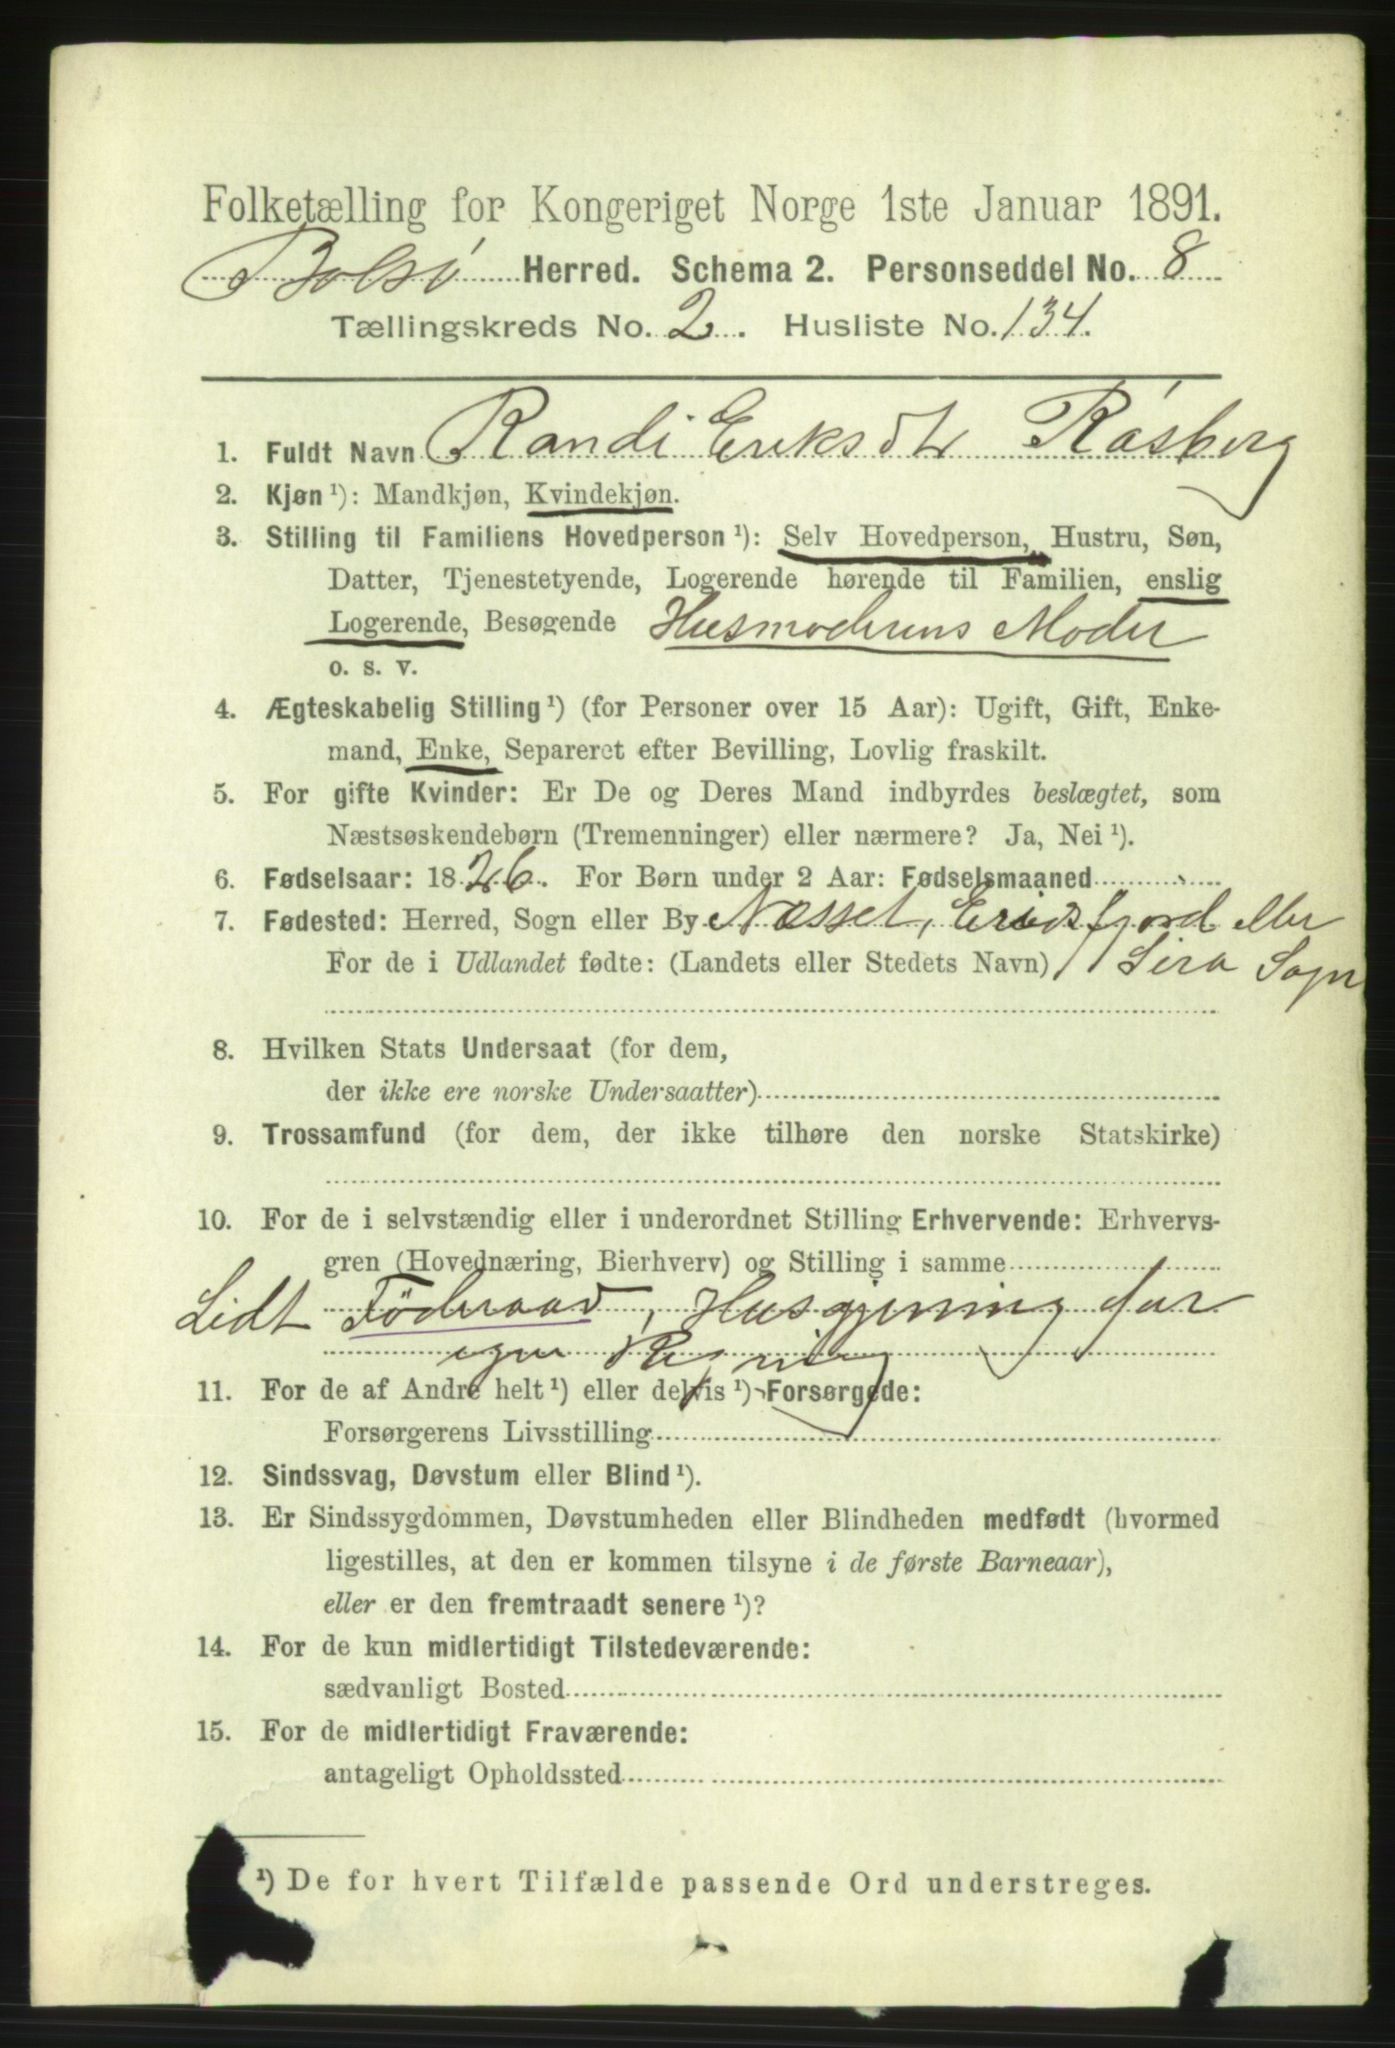 Folketælling for Kongeriget Norge 1ste Januar 1891.
Bolsø Herred. Schema 2. Personseddel No. 8
Tællingskreds No. 2. Husliste No. 134.
1. Fuldt Navn Randi Eriksdtr Råsberg
2. Kjøn ¹): Mandkjøn, Kvindekjøn.
3. Stilling til Familiens Hovedperson ¹): Selv Hovedperson, Hustru, Søn,
Datter, Tjenestetyende, Logerende hørende til Familien, enslig
Logerende, Besøgende Husmoderens Moder
o. s. v.
4. Ægteskabelig Stilling ¹) (for Personer over 15 Aar): Ugift, Gift, Enke-
mand, Enke, Separeret efter Bevilling, Lovlig fraskilt.
5. For gifte Kvinder: Er De og Deres Mand indbyrdes beslægtet, som
Næstsøskendebørn (Tremenninger) eller nærmere? Ja, Nei ¹).
6. Fødselsaar: 1826. For Børn under 2 Aar: Fødselsmaaned
7. Fødested: Herred, Sogn eller By Næsset, Eridsfjord eller
For de i Udlandet fødte: (Landets eller Stedets Navn) Sira Sogn
8. Hvilken Stats Undersaat (for dem,
der ikke ere norske Undersaatter)
9. Trossamfund (for dem, der ikke tilhøre den norske Statskirke)
10. For de i selvstændig eller i underordnet Stilling Erhvervende: Erhvervs-
gren (Hovednæring, Bierhverv) og Stilling i samme
Lidt Föderaad, Husgjerning for
egen Regning
11. For de af Andre helt ¹) eller delvis ¹) Forsørgede:
Forsørgerens Livsstilling
12. Sindssvag, Døvstum eller Blind ¹).
13. Er Sindssygdommen, Døvstumheden eller Blindheden medfødt (hvormed
ligestilles, at den er kommen tilsyne i de første Barneaar),
eller er den fremtraadt senere ¹)?
14. For de kun midlertidigt Tilstedeværende:
sædvanligt Bosted
15. For de midlertidigt Fraværende:
antageligt Opholdssted
¹) De for hvert Tilfælde passende Ord understreges.